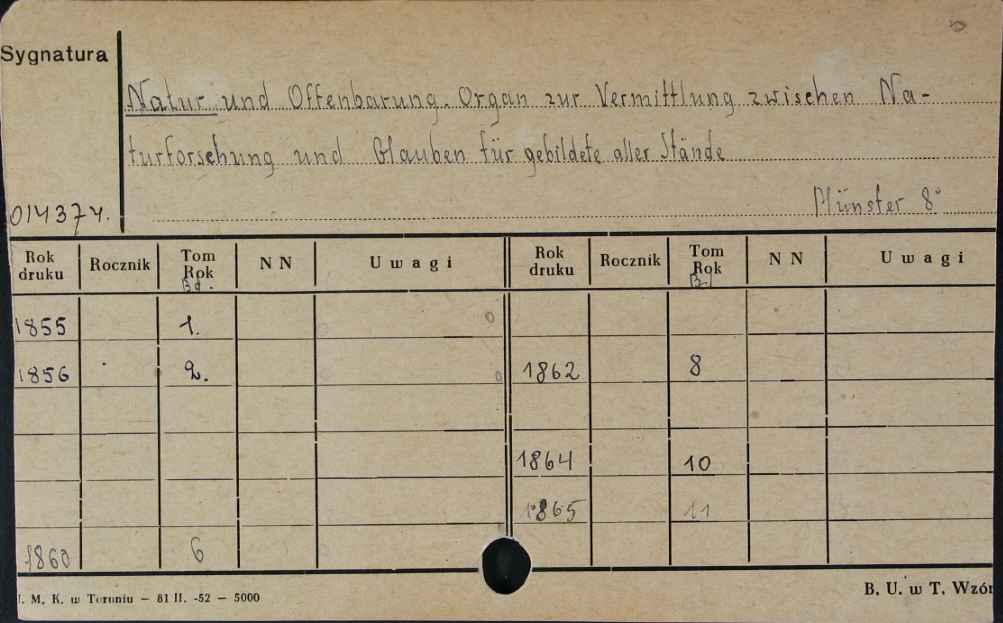 Sygnatura
Natur und Offenbarung. Organ zur Vermittlung zwischen Na-
turforschung und Glauben für gebildete aller Stände
Münster 8°
014374.
Rok druku Rocznik Tom Rok Bd. NN Uwagi Rok druku Rocznik Tom Rok Bd NN Uwagi
1855 1.
1856 2. 1862 8
1864 10
1865 11
1860 6
. M. K. w Toruniu — 81 II. -52 — 5000
B. U. w T. Wzór